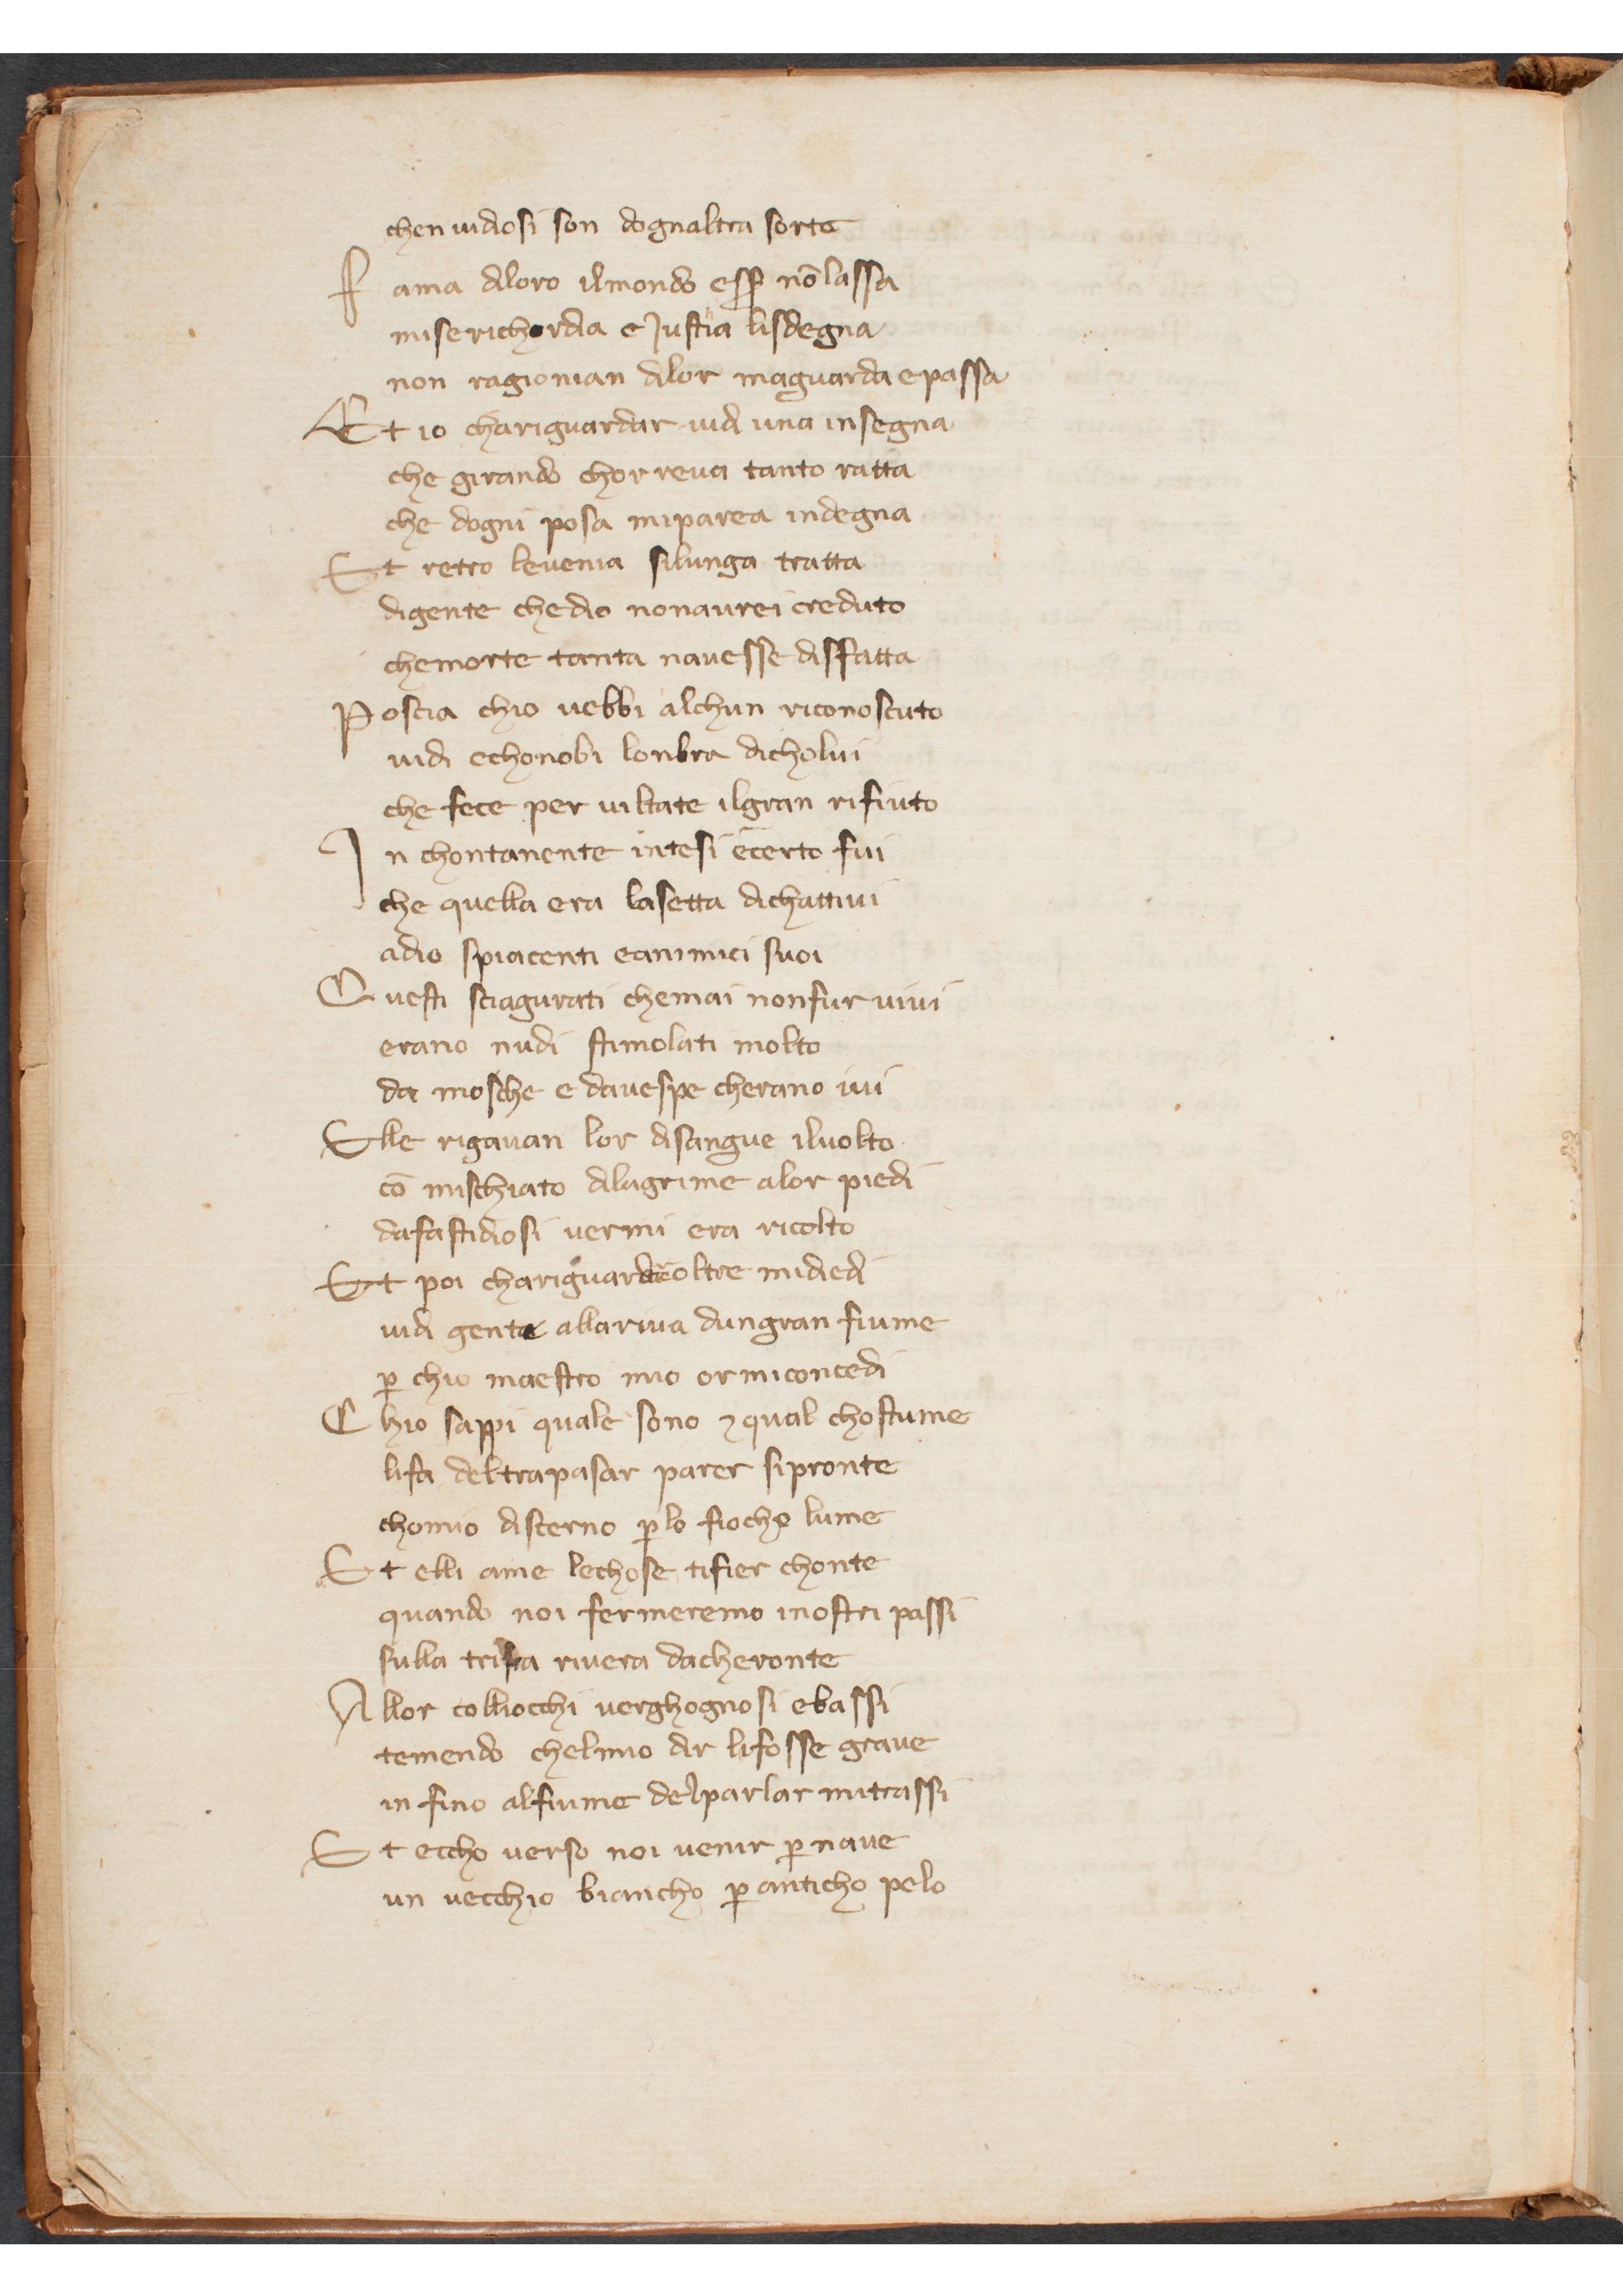 chen uidiosi son dognaltra sorte
Fama diloro ilmondo esser nō lassa
miserichordia e Justia lisdegna
non ragionian dilor maguarda epassa
Et io chariguardar uidi una insegna
che girando chorreua tanto ratta
che dogni posa miparea indegna
Et retro leuenia silunga tratta
digente chedio nonaurei creduto
chemorte tanta nauesse disfatta
Poscia chio uebbi alchun riconosciuto
uidi echonobi lonbra dicholui
che fece per uiltate ilgran rifiuto
In chontanente intesi ecerto fui
che quella era lasetta dichattiui
adio spiacenti eanimici suoi
Questi sciagurati chemai nonfur uiui
erano nudi stimolati molto
da mosche e dauespe cherano iui
Elle rigauan lor disangue iluolto
cō mischiato dilagrime alor piedi
dafastidiosi uermi era ricolto
Et poi chariguardare oltre midiedi
uidi gente allariua dungran fiume
ꝑ chio maestro mio or miconcedi
Chio sappi quale sono ⁊ qual chostume
lifa deltrapasar parer sipronte
chomio discerno ꝑ lo fiocho lume
Et elli ame lechose tifier chonte
quando noi fermeremo inostri passi
sulla trista riuera dacheronte
Allor colliocchi uerghognosi ebassi
temendo chelmio dir lifosse graue
in fino alfiume delparlar mitrassi
Et eccho uerso noi uenir ꝑ naue
un uecchio biancho ꝑ anticho pelo